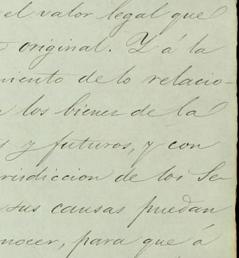 el valor legal que
original. Y á la
miento de lo relacio-
los bienes de la
s y futuros, y con
risdiccion de los Se-
sus causas puedan
nocer, para que á